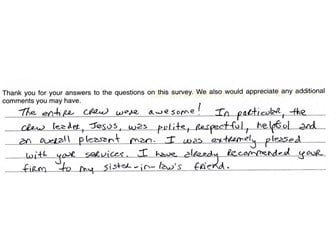 Thank you for your answers to the questions on this survey. We also would appreciate any additional
comments you may have.
The entire crew were awesome! In particular, the
crew leader, Jesus, was polite, respectful, helpful and
an overall pleasant man. I was extremely pleased
with your services. I have already recommended your
firm to my sister-in-law's friend.